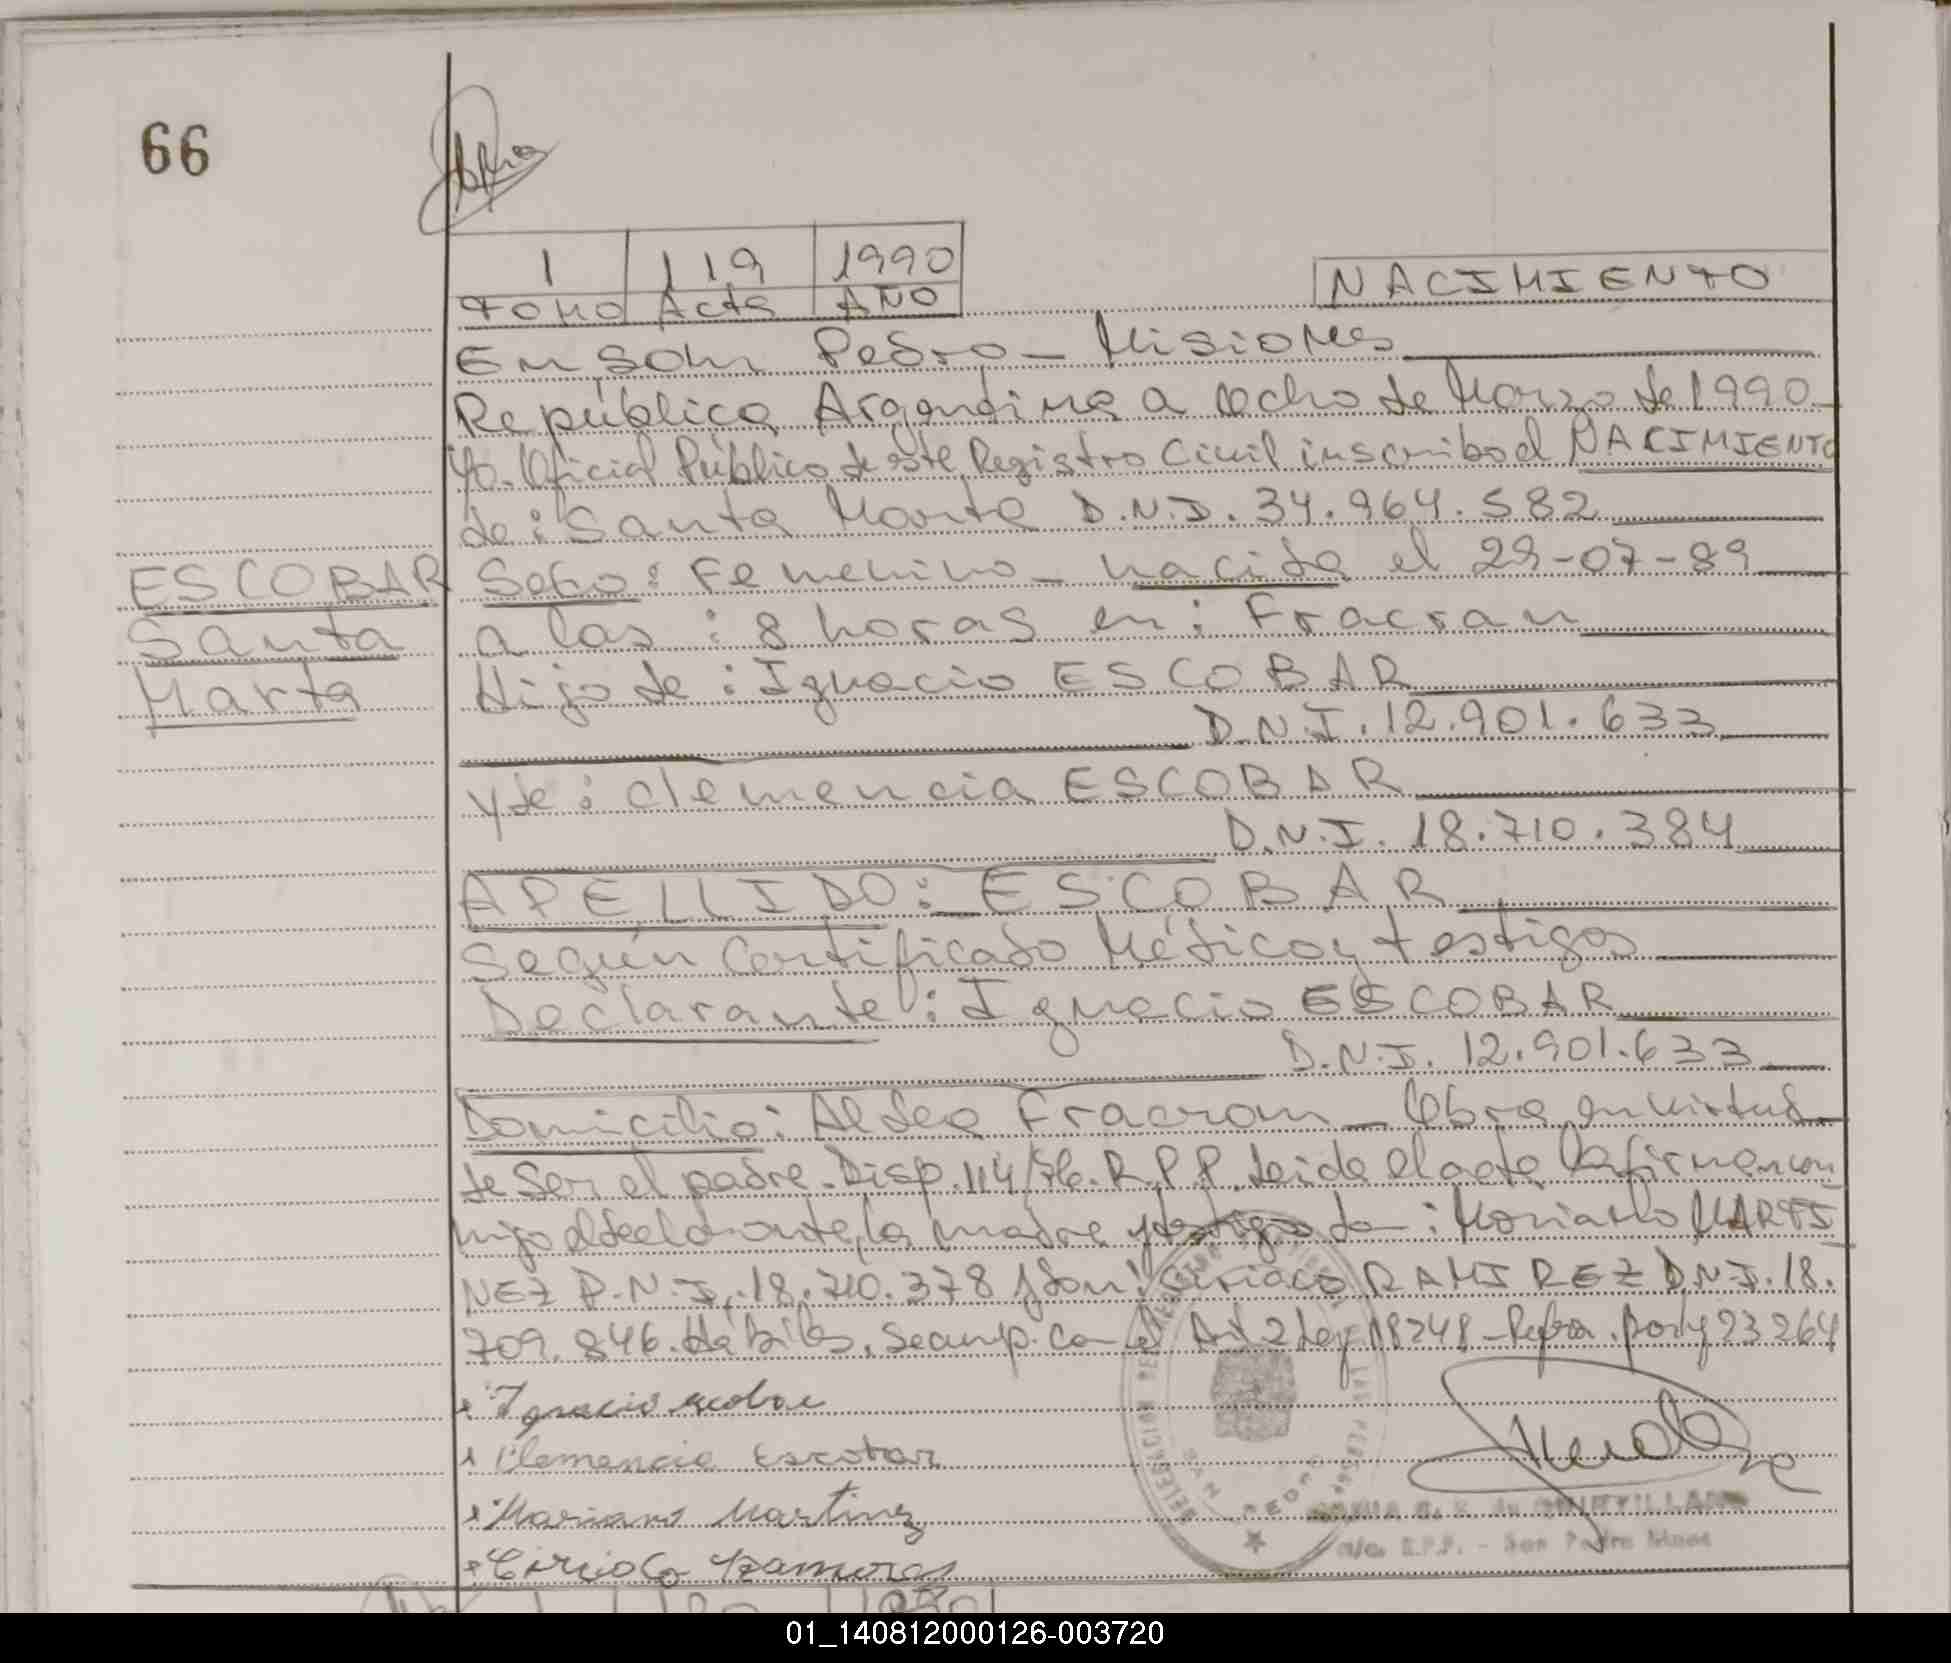 66
1 119 1990
TOMO Acta AÑO
NACIMIENTO
En San Pedro - Misiones
República Argentina a ocho de Marzo de 1990
Yo. Oficial Público de este Registro Civil inscribo el NACIMIENTO
de: Santa Marta D.N.I. 34.964.582
ESCOBAR
Santa
Marta
Sexo: Femenino - nacida el 29-07-89
a las: 8 horas en: Fracran
Hijo de: Ignacio ESCOBAR
D.N.I. 12.901.633
y de: Clemencia ESCOBAR
D.N.I. 18.710.384
APELLIDO: ESCOBAR
Según Certificado Médico y testigos
Declarante: Ignacio ESCOBAR
D.N.I. 12.901.633
Domicilio: Aldea Fracran - Obra en virtud
de ser el padre. Disp. 114/76. R.P.P. Leida el acta la firman con
migo el declarante, la madre y testigos: Mariano MARTI
NEZ D.N.I. 18.710.378 y don: Ciriaco RAMIREZ D.N.I. 18.
709.846. Hábiles. Se cump. con el Art 2 Ley 18248 - por Ley 23264
Ignacio escobar
Clemencia Escobar
Mariano Martinez
DELEGACION
SAN PEDRO
DE QUINTILLAN
a/c. R.P.P. - San Pedro Mnes
01_140812000126-003720